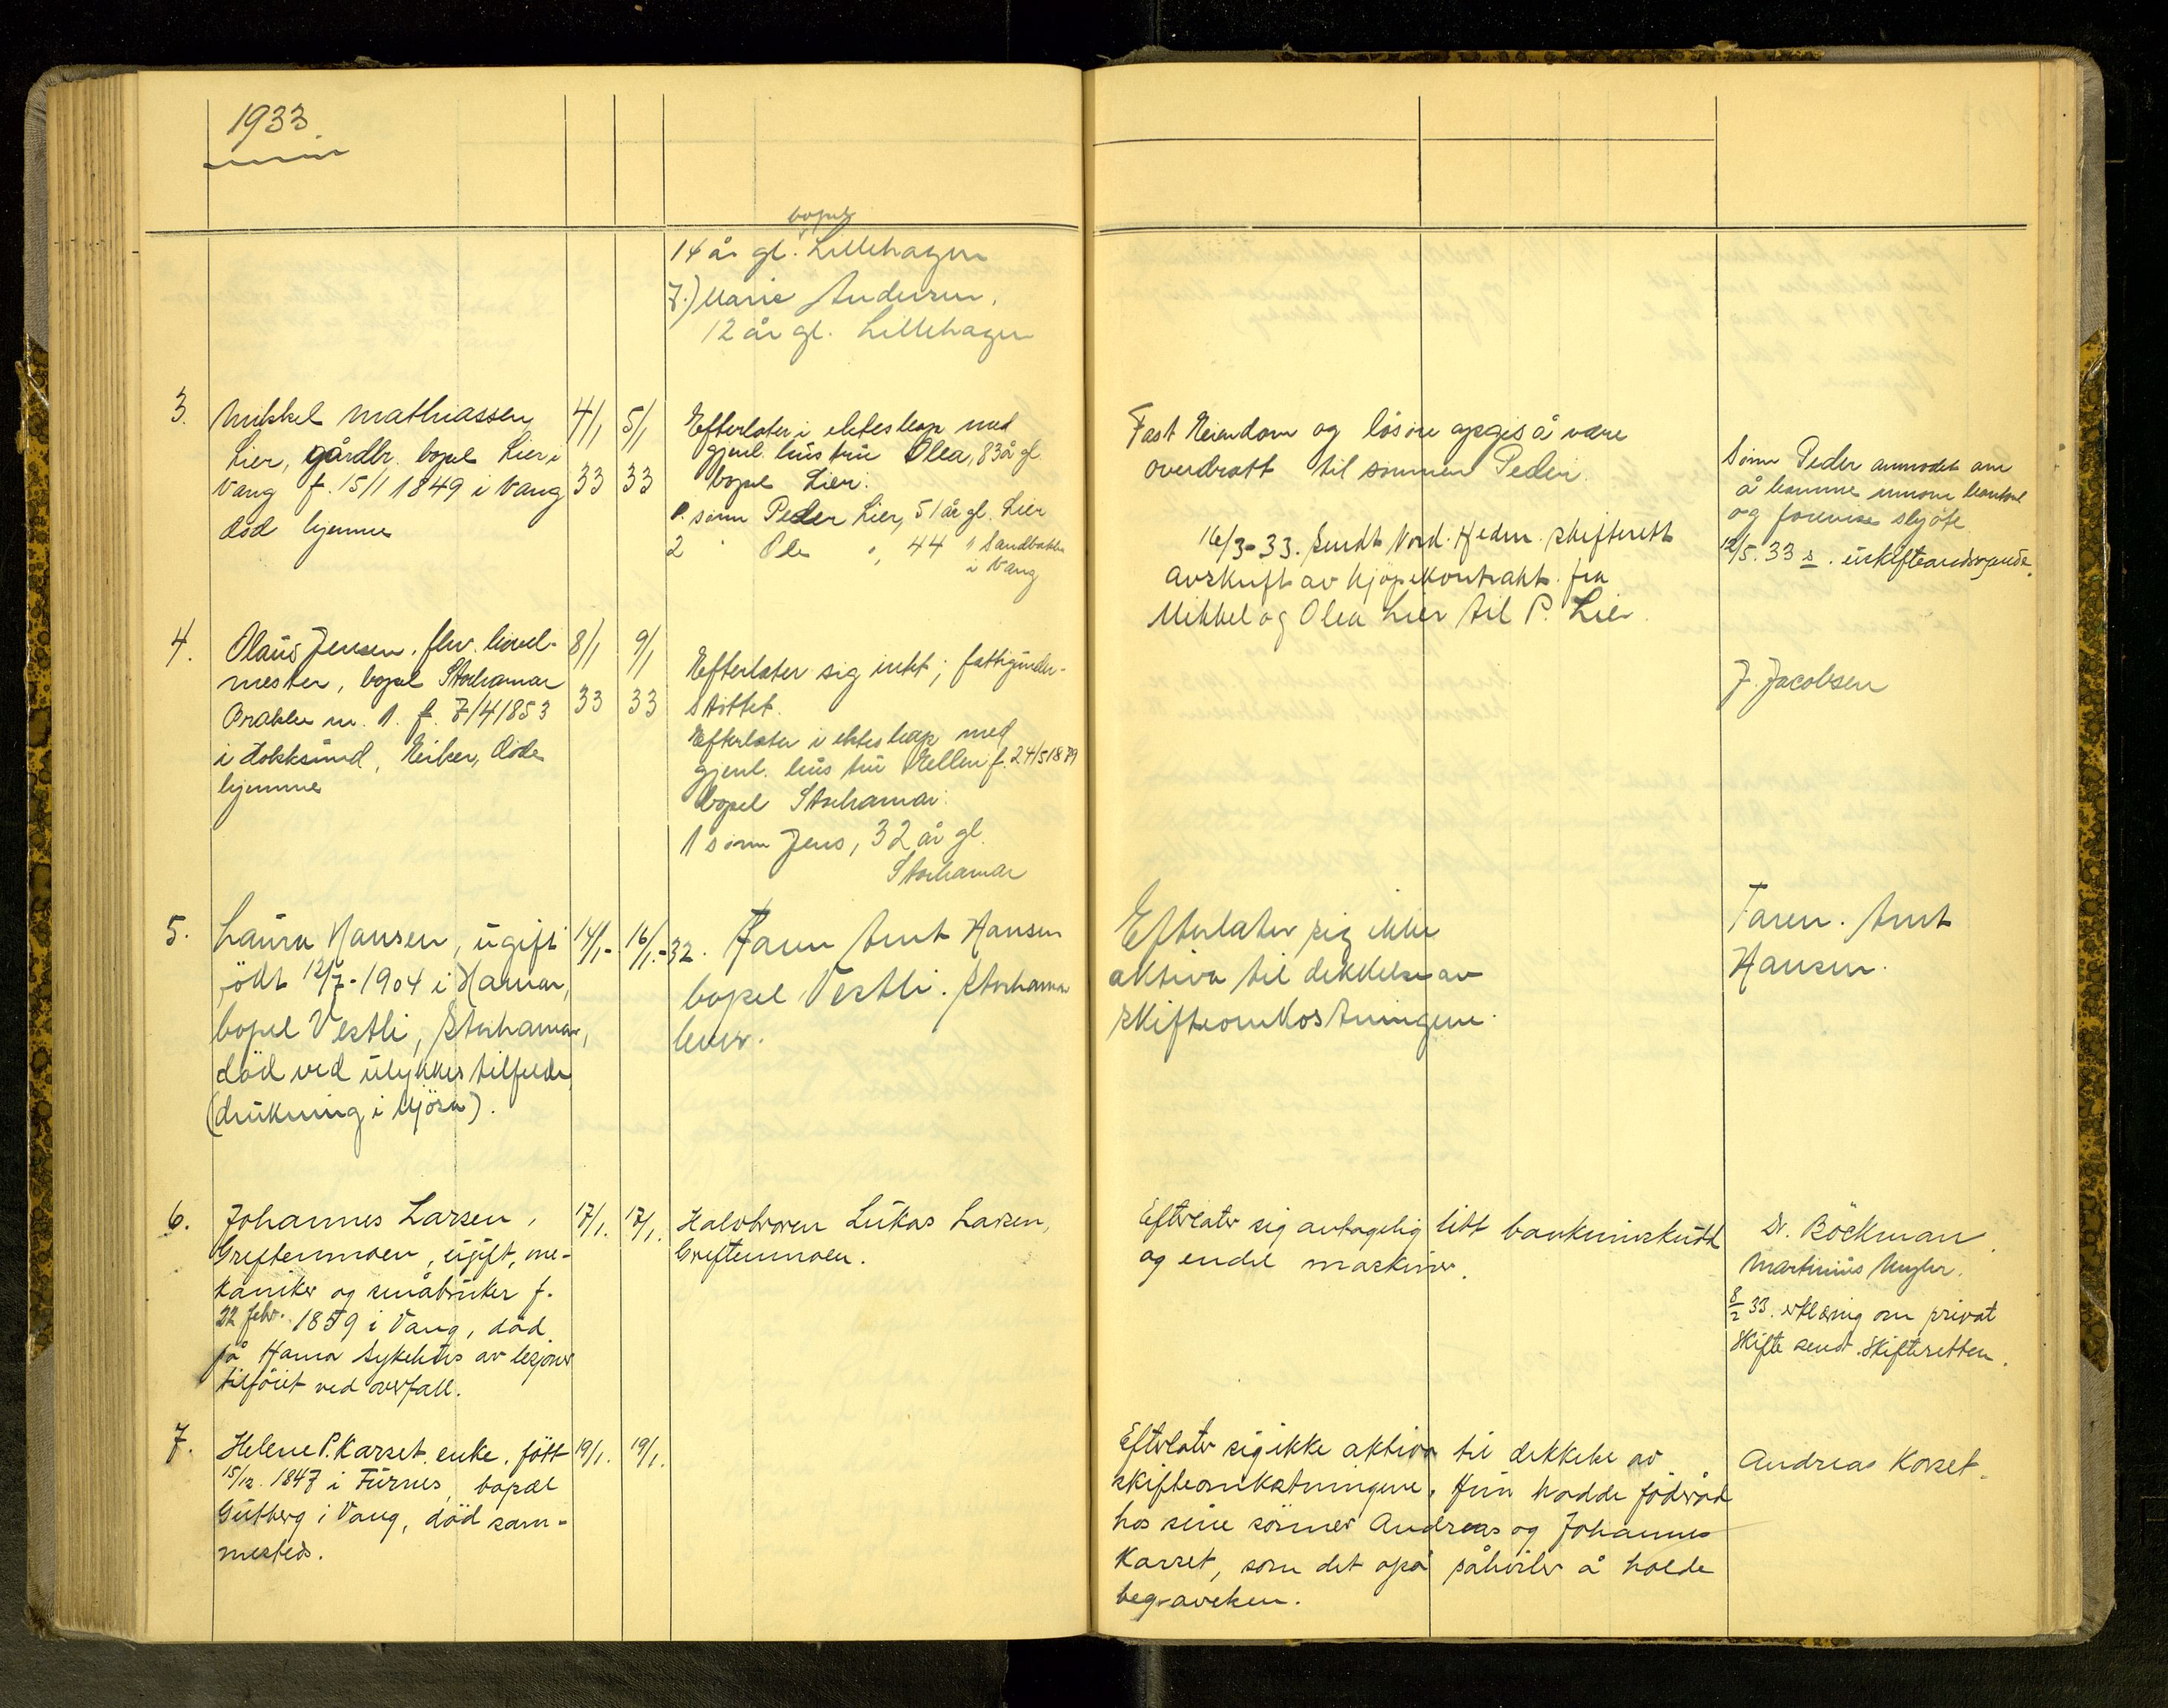 1933
bopel
14 år gl. Lillehagen
7.) Marie Andersen,
12 år gl. Lillehagen
3.
Mikkel Mathiassen
Lier, gårdbr. bopel Lier i
Vang f. 15/1 1849 i Vang
död hjemme
4/1
33
5/1
33
Efterlater i ekteskap med
gjenl. hustru Olea, 83 år gl.
bopel Lier.
1. sönn Peder Lier, 51 år gl. Lier
2 " Ole " 44 " Sandbakken
i Vang
Fast Eiendom og lösöre opgis å være
overdratt til sönnen Peder.
16/3-33. Sendt Nord-Hedm. skifterett
avskrift av kjöpekontrakt fra
Mikkel og Olea Lier til P. Lier
Sönn Peder anmodet om
å komme innom kontoret
og forevise skjöte
12/5.33 s. uskifteandragende.
4.
Olaus Jensen, fhv. 
mester, bopel Storhamar
Brakke nr. 1. f. 7/4 1853
i Hokksund, Eiker, döde
hjemme
8/1
33
9/1
33
Efterlater sig intet; fattigunder-
støttet.
Efterlater i ekteskap med
gjenl. hustru Ellen f. 24/5 1879
bopel Storhamar.
1 sönn Jens, 32 år gl.
Storhamar
J. Jacobsen
5.
Laura Hansen, ugift
födt 12/7-1904 i Hamar,
bopel Vestli, Storhamar,
död ved ulykkes tilfelde
(drukning i Mjösa).
14/1.-
16/1.-32.
Faren Arnt Hansen
bopel Vestli. Storhamar
lever.
Efterlater sig ikke
aktiva til dekkelse av
skifteomkostningene.
Faren. Arnt
Hansen.
6.
Johannes Larsen,
Greftenmoen, ugift, me-
kaniker og småbruker f.
22 febr. 1859 i Vang, död
på Hamar Sykehus av lesjoner
tilföiet ved overfall.
17/1.
17/1.
Halvbroren Lukas Larsen,
Greftenmoen.
Efterlater sig antagelig litt bankinnskudd
og endel maskiner.
Dr. Böckman.
Martinius
8/2 33. erklæring om privat
skifte sendt skifteretten.
7.
Helene P. Karset, enke, född
15/12. 1847 i Furnes, bopæl
Gutberg i Vang, död sam-
mesteds.
19/1.
19/1.
Efterlater sig ikke aktiva til dekkelse av
skifteomkostningene. Hun hadde föderåd
hos sine sönner Andreas og Johannes
Karset, som det også påhviler å holde
begravelsen.
Andreas Korset.